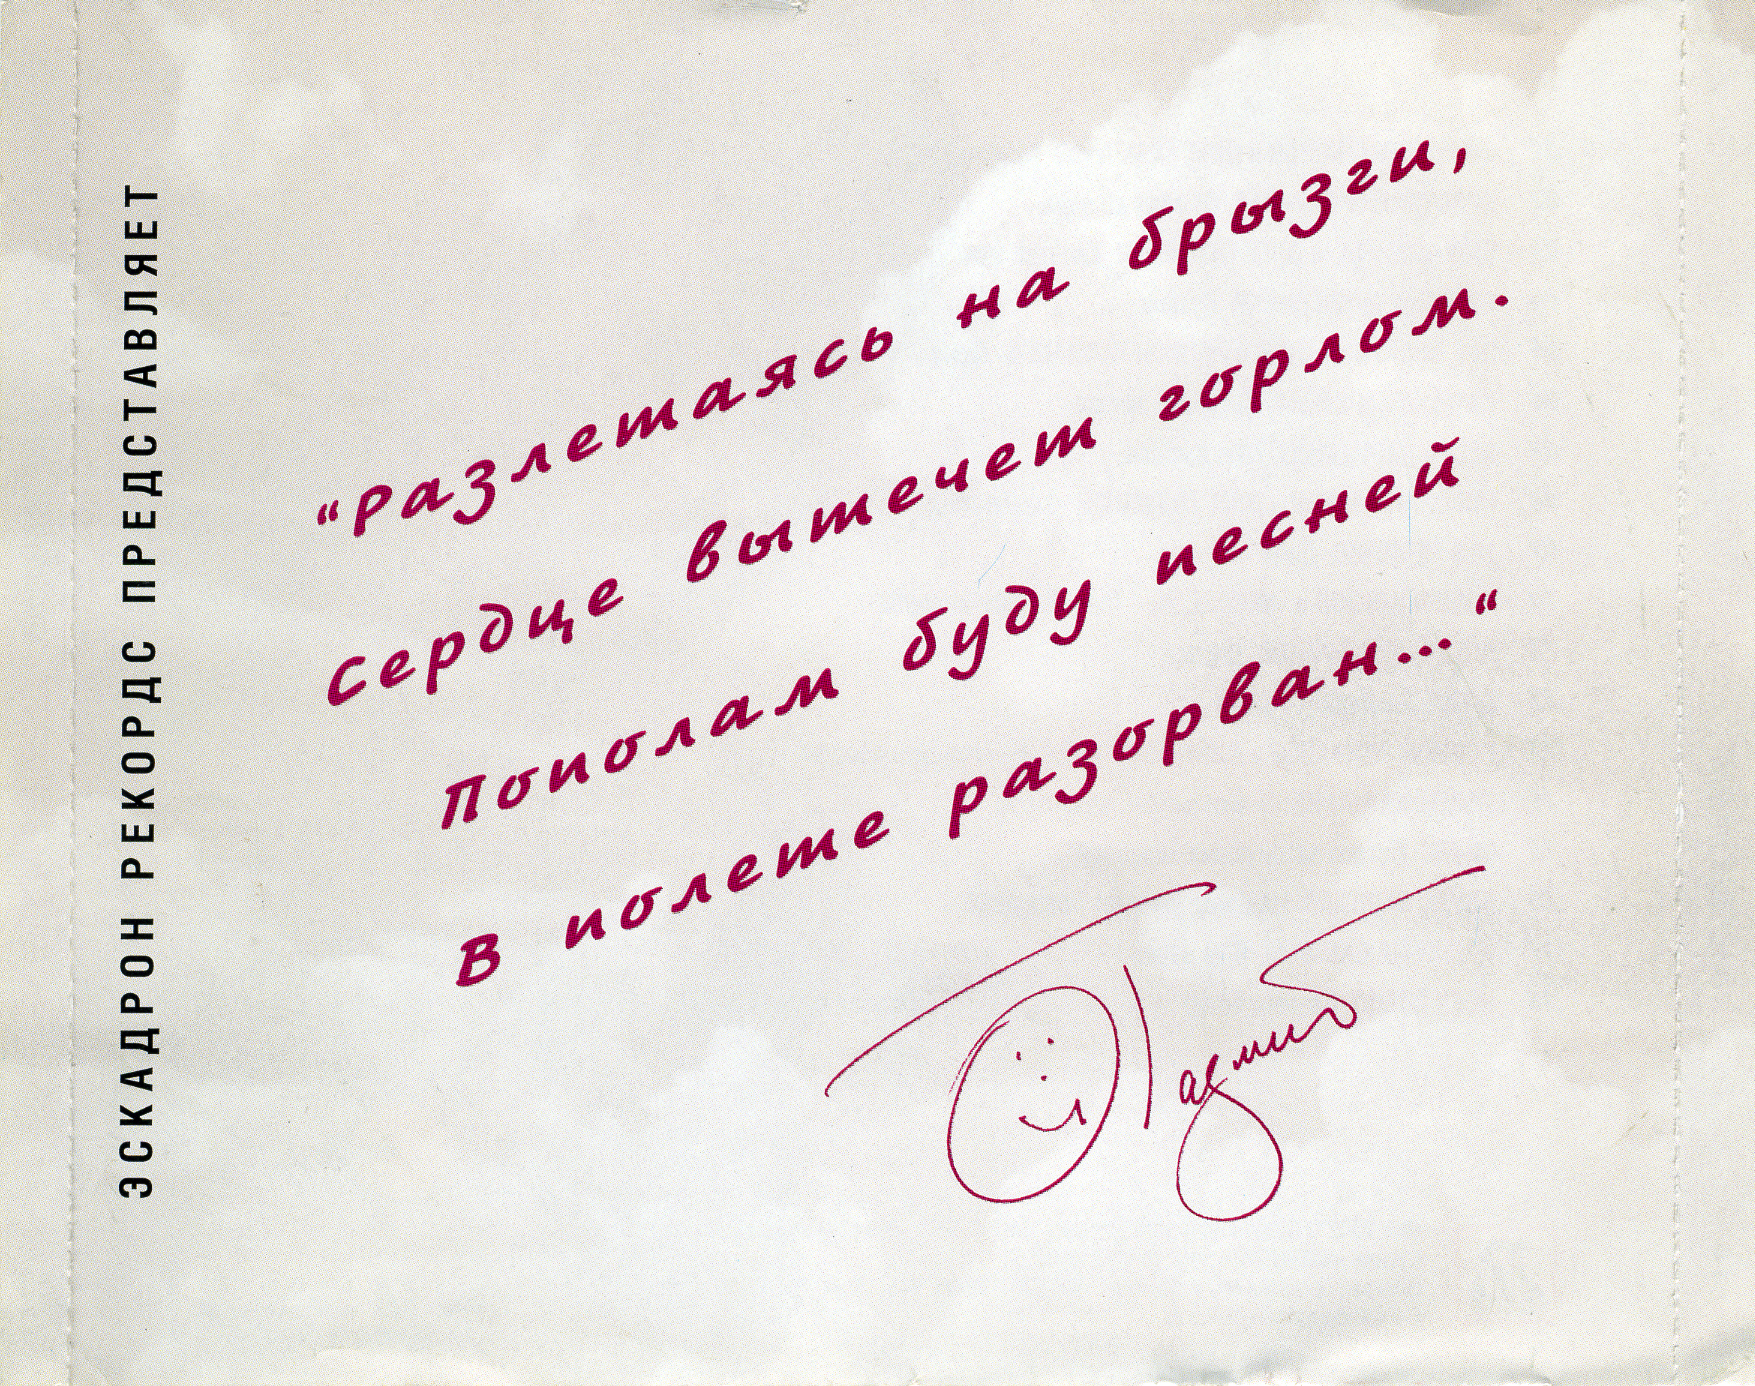 ЭСКАДРОН РЕКОРДС ПРЕДСТАВЛЯЕТ
“Разлетаясь на брызги,
Сердце вытечет горлом.
Пополам буду песней
В полете разорван...“